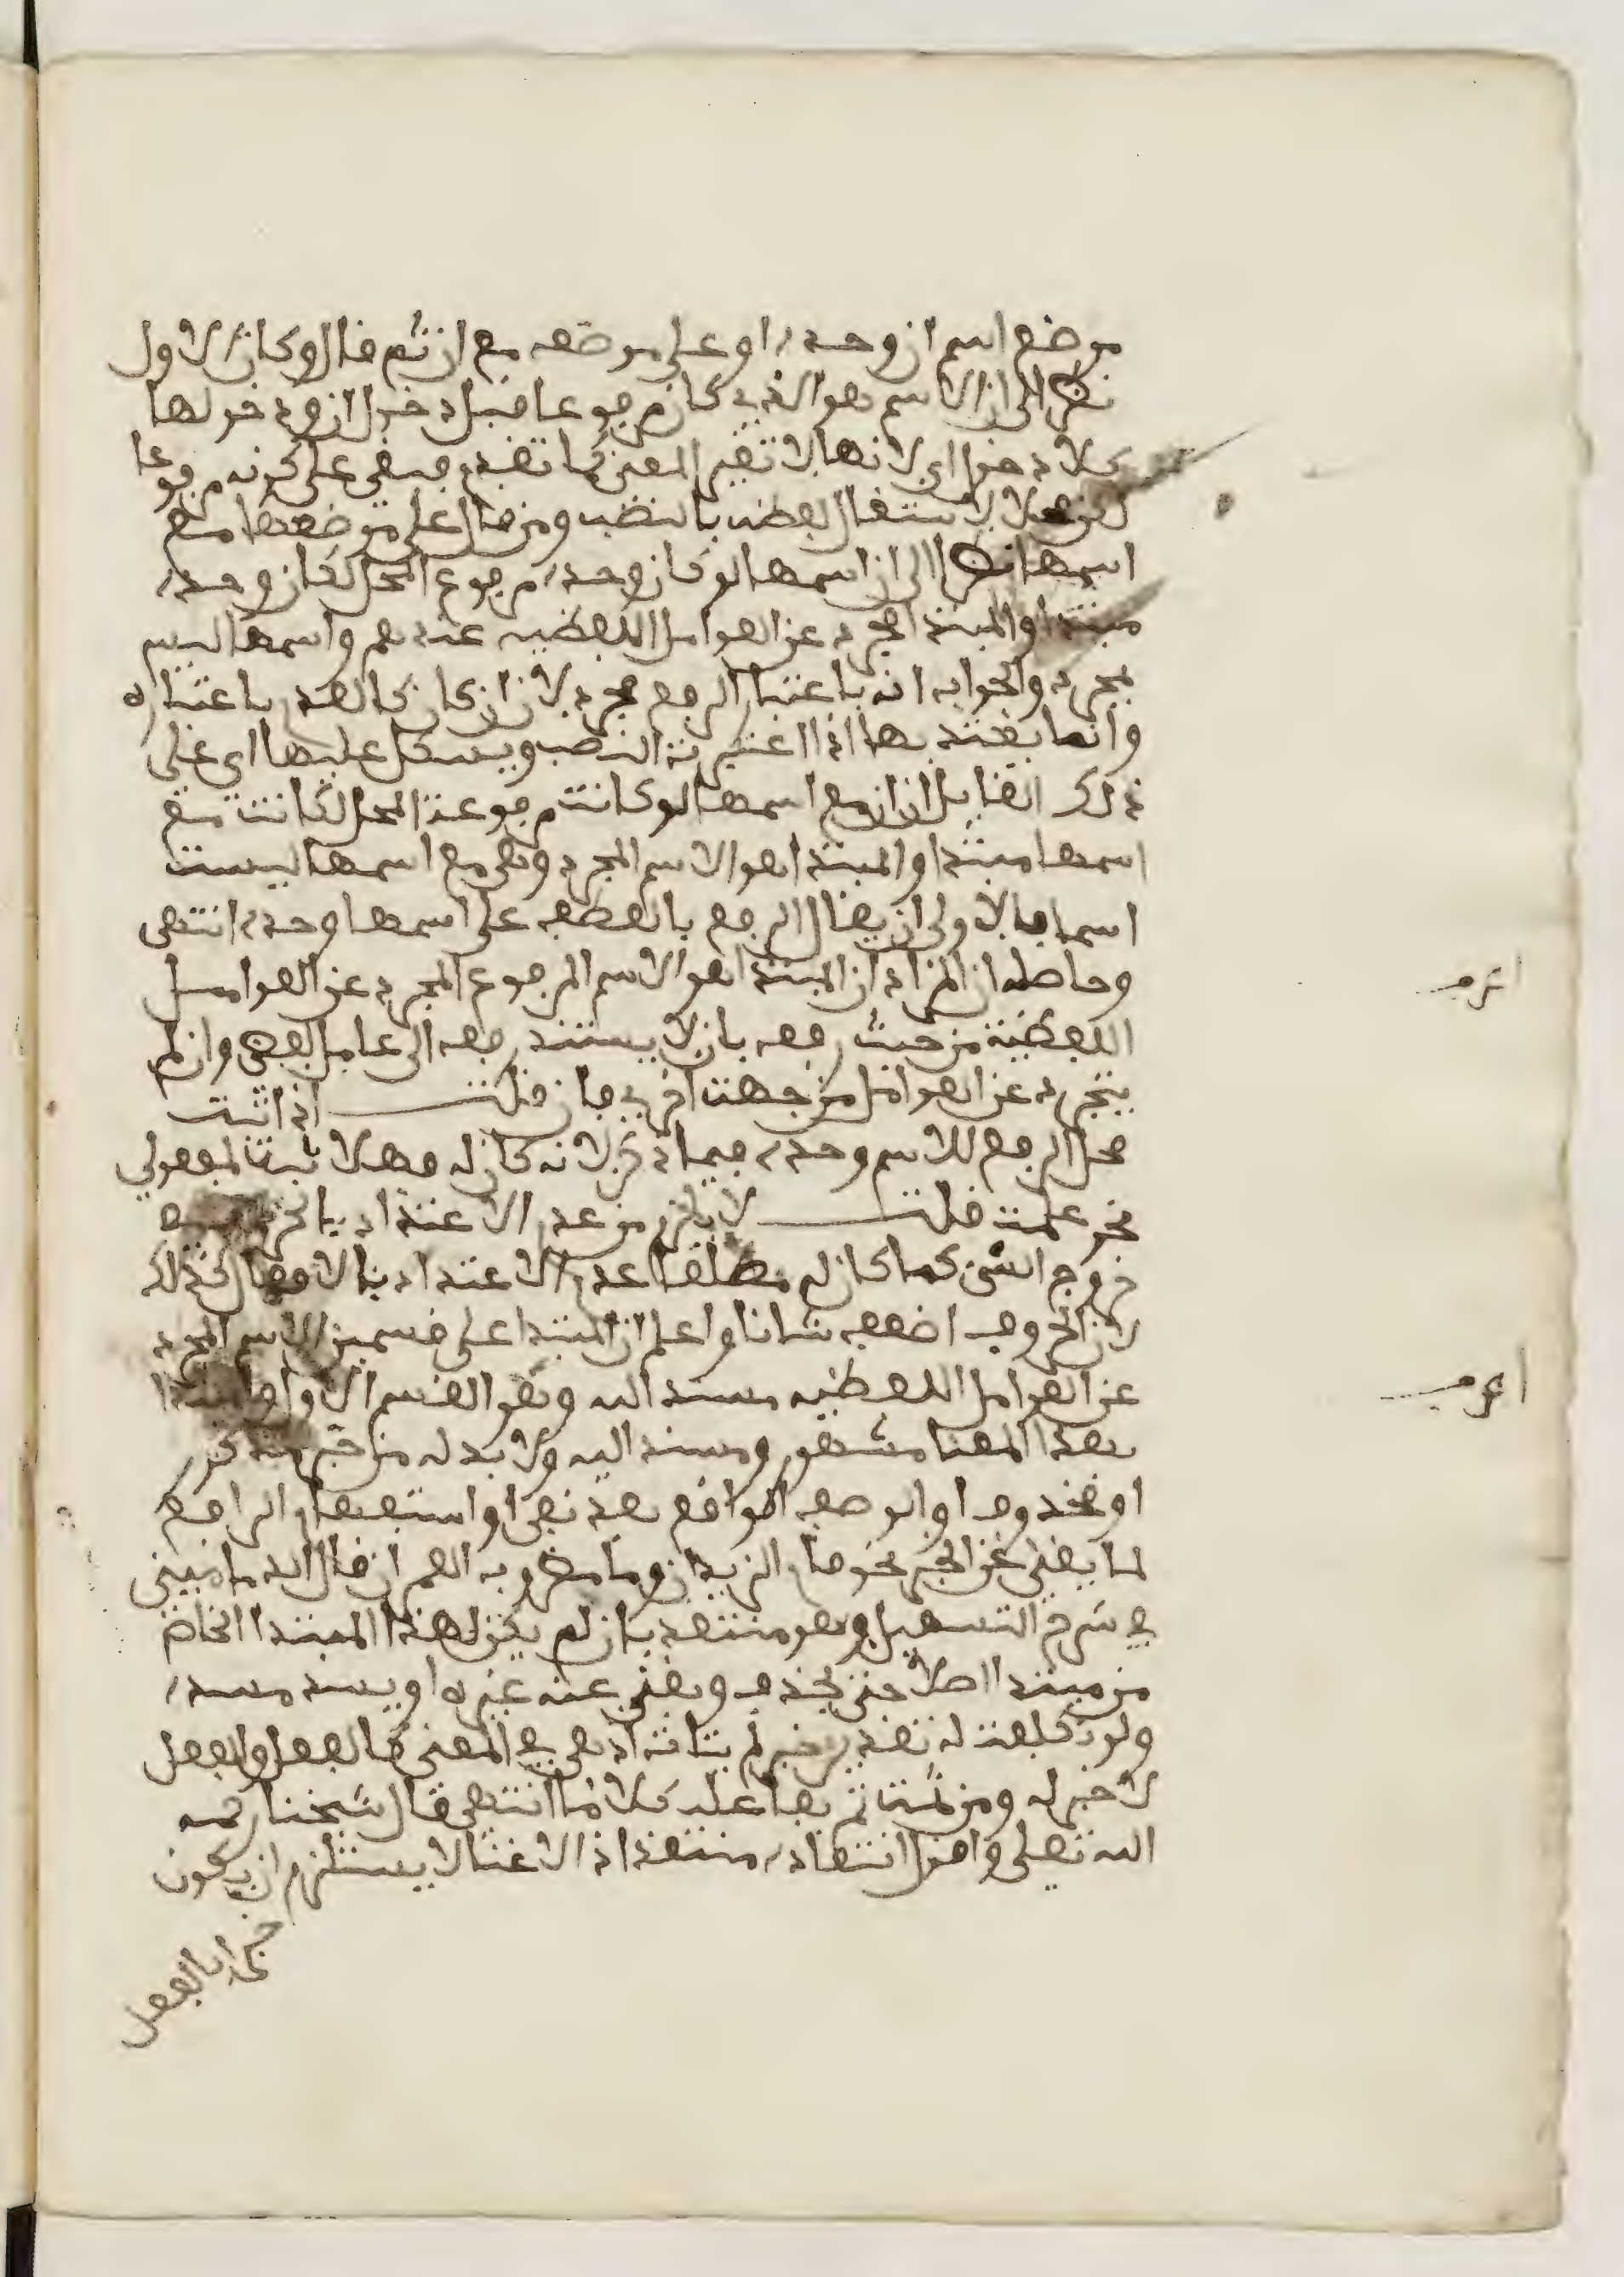 موضع اسم ان وحده او على موضعه مع ان ثم قال وكان الاول
نظر الى ان الاسم هو الذي كان مرفوعا قبل دخول ان ودخولها
كلا دخول اي لانها لا تغير المعنى كما تقدم فبقي على كونه مرفوعا
لاشتغال لفظه بالنصب ومن قال على موضعها مع
اسمها نظر الى ان اسمها لو كان وحده مرفوع المحل لكان وحده
مبتدا والمبتدا المجرد عن العوامل اللفظيه عندهم واسمها ليس
بمجرد والجواب انه باعتبار الرفع مجرد لان ان كان كالعدم باعتباره
وانما يعتد بها اذا اعتبرت النصب ويشكل عليها اي على
ذلك القايل ان ان مع اسمها لو كانت مرفوعة المحل لكانت مع
اسمها مبتدا والمبتدا هو الاسم المجرد وهي مع اسمها ليست
اسما فالاولى ان يقال الرفع بالعطف على اسمها وحده انتهى
وحاصله ان المراد ان المبتدا هو الاسم المرفوع المجرد عن العوامل
اللفظية من حيث رفعه بان لا يستند رفعه الى عامل لفظي وان لم
يتجرد عن العوامل من جهت اخرى فان قلت اذا ثبت
محل الرفع للاسم وحده فيما ذكر لانه كان له فهلا ثبت لمفعولي
نحو علمت قلت لا يلزم من عدم الاعتداد بالحرف
خروج الشي كما كان له مطلقا عدم الاعتداد بالافعال كذلك
لان الحروف اضعف شانا واعلم ان المبتدا على قسمين الاسم المجرد
عن العوامل اللفظيه مسند اليه وهو القسم الاول
بهذا المعنا مشهور ومسند اليه ولا بد له من خبر مذكور
او محذوف او الوصف الواقع بعد نفي او استفهام الرافع
لما يغني عن الخبر نحو قام الزيدان وما مضروب العم ان قال الدماميني
في شرح التسهيل وهو منتقد بان لم يكن لهذا المبتدا الخاص
من مبتدا اصلا حتى يحذف ويغني عنه غيره او يسد مسده
ولو تكلفت له تقدير خبر لم يتات اذ هي في المعنى كالفعل والفعل
لا خبر له ومن ثمت تم بفاعله كلاما انتهى قال شيخنا رحمه
الله تعلى واقول انتقاده منتقد اذ الاغنا لا يستلزم ان يكون
خبرا بالفعل
اعرف
اعرف